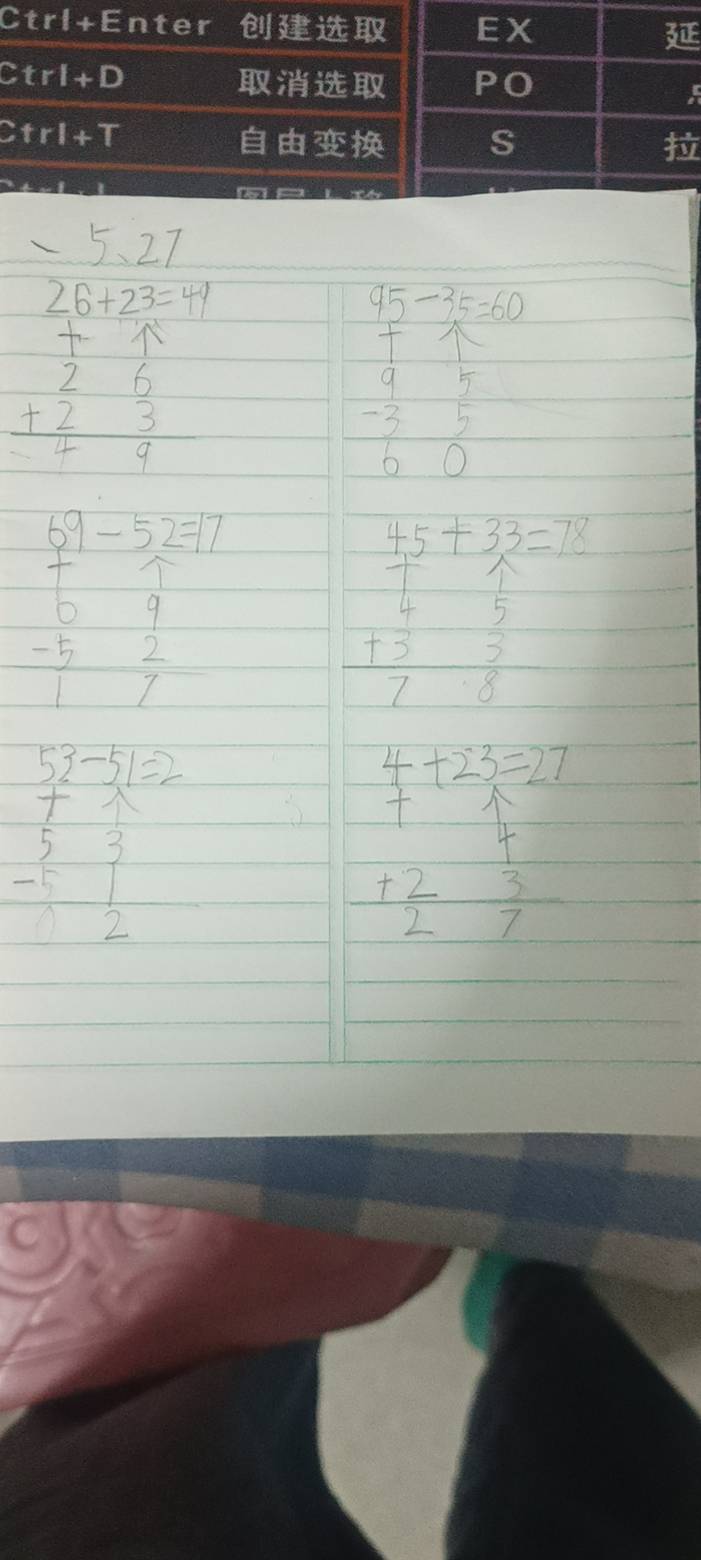 Ctrl+Enter 创建选取 EX 延
Ctrl+D 取消选取 PO
Ctrl+T 自由变换 S 拉
5、27
26+23=49
十 个
2 6
+2 3
4 9
95-35=60
十 个
9 5
-3 5
6 0
69-52=17
十 个
6 9
-5 2
1 7
45+33=78
十 个
4 5
+3 3
7 8
53-51=2
十 个
5 3
-5 1
0 2
4+23=27
十 个
4
+2 3
2 7